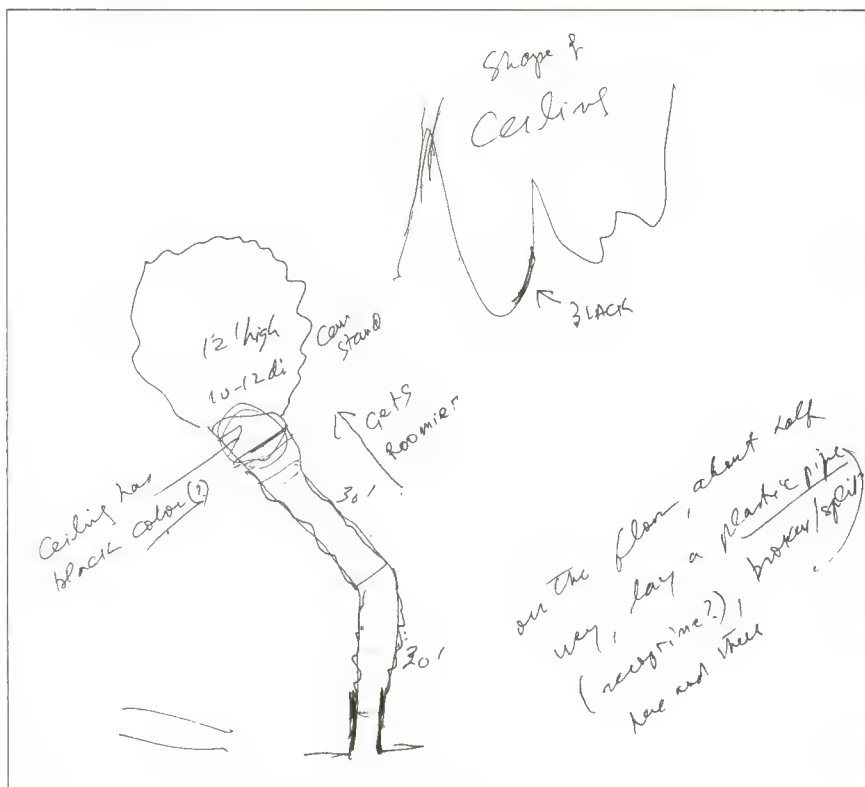 Shape of
Ceiling
BLACK
12' high
10-12 di
Can
stand
Gets
Roomier
30'
Ceiling has
black color (?)
30'
on the floor, about half
way, lay a plastic pipe
broken/split
here and there